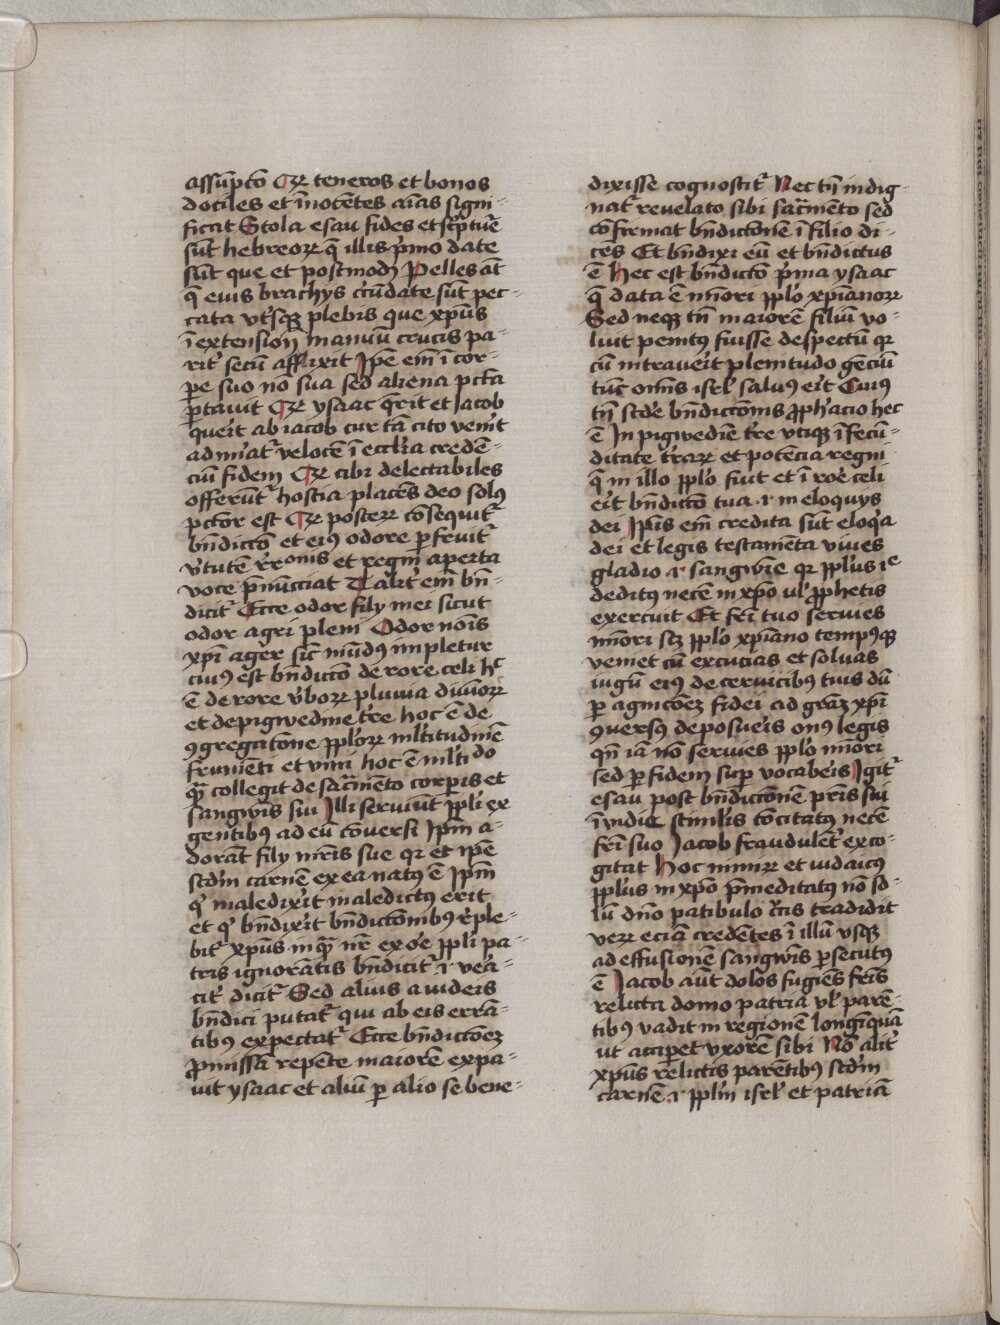 assūp̄to Qꝛ teneros et bonos
dociles et īnocētes aīas signi-
ficat Stola esau fides et sc̄ptuē
sūt hebreoꝝ q̄ illis p̄mo date
sūt que et postmodū Pelles āt
q̄ eius brachys circūdate sūt pec-
cata vtriusqꝫ plebis que xp̄us
ī extensioē manuū crucis pa-
rit̛ secū affixit Ip̄e em̄ ī cor-
pe suo nō sua sed aliena pctā
ꝑtauit Qꝛ ysaac q̄rit et Jacob
querit ab iacob cur tā cito venit
admirat̛ velocē ī ecclīa credē-
ciū fidem Qꝛ cibi delectabiles
offerūt̛ hostia placēs deo solꝰ
pctōr est Qꝛ posteꝝ cōsequit̛
bn̄dictō et eiꝰ odore ꝑfruit̛
v̛tutē rr̄onis et regni aperta
voce p̄nūcciat Talit̛ em̄ bn̄-
dicit̛ Ecce odor fily mei sicut
odor agri pleni Odor nōis
xp̄i ager sic mūdꝰ impletur
ciuꝰ est bn̄dictō de rore celi hᶜ
ē de rore v̛boꝝ pluuia diuīoꝝ
et de pigwedine tr̄e hoc ē de
ꝯgregatōne pp̄loꝝ ml̄titudinē
frumēti et vini hoc ē ml̄tido
quā collegit de sacr̄mēto corporis et
sangwīs sui Illi seruiūt pp̄li ex
gentibꝰ ad eū cōuersi Ip̄m a-
dorāt fily mr̄is sue qꝛ et ip̄e
scd̄m carnē ex ea natꝰ ē Ip̄m
qͥ maledixit maledictus erit
et qͥ bn̄dixit bn̄dictōnibꝰ r̄ple-
bit̛ xp̄us inquā nr̄ ex oīe pp̄li pa-
tris ignorātis bn̄dicit̛ ⁊ vera-
cit̛ dicit̛ Sed alius a iudeis
bn̄dici putat̛ qui ab eis errā-
tibꝰ expectat̛ Ecce bn̄dictōeꝫ
ꝓmissā repēte maiorē expa-
uit ysaac et aliū ꝑ alio se bene-
dixisse cognoscit̛ Nec tn̄ indig-
nat̛ reuelato sibi sacr̄mēto sed
cōfirmat bn̄dictōnē ī filio di-
cēs Et bn̄dixi eū et bn̄dictus
ē Hec est bn̄dictō p̄ma ysaac
q̄ data ē mīori pp̄lo xp̄ianoꝝ
Sed neqꝫ tn̄ maiorē filiū vo-
luit penitꝰ fuisse despectū qꝛ
cū intrauerit plenitudo genciū
tūc om̄is isrl̄ saluꝰ erit Cuiꝰ
tn̄ scd̄e bn̄dictōnis ꝓph̄acio hec
ē In pigwedīe tr̄e vtiqꝫ ī fecū-
ditate t̛raꝝ et potēcia regni
q̄ in illo pp̄lo fuit et ī rore celi
erit bn̄dictō tua ⁊ in eloquys
dei Ip̄is em̄ credita sūt eloq̄a
dei et legis testamēta viues
gladio ⁊ sangwīe qꝛ pp̄lus iᵉ
deditꝰ necē in xp̄o vl̛ ꝓphetis
exercuit Et fr̄i tuo seruies
mīori scꝫ pp̄lo xp̄iano tempꝰqꝫ
veniet cū excucias et soluas
iugū eiꝰ de ceruicibꝰ tuis dū
ꝑ agnicōeꝫ fidei ad grāꝫ xp̄i
ꝯuersꝰ deposueris onꝰ legis
qn̄ iā nō seruies pp̄lo mīori
sed ꝑ fidem fr̄ vocaberis Igit̛
esau post bn̄dictōnē pr̄is sui
īuidie stimulis cōcitatus necē
fr̄i suo Jacob fraudulēt̛ exco-
gitat Hoc nimiꝝ et iudaicꝰ
pp̄lus in xp̄o p̄meditatꝰ nō so-
lū dn̄o patibulo cr̄cis tradidit
veꝝ eciā credētes ī illū vsqꝫ
ad effusionē sangwīs ꝑsecutꝰ
ē Jacob aūt dolos fugiēs fr̄is
relicta domo patria vl̛ parē-
tibꝰ vadit in regionē longīquā
ut acciperet vxorē sibi Nō alit̛
xp̄us relictis parētibꝰ scd̄m
carnē ⁊ pp̄lm isrl̄ et patriā